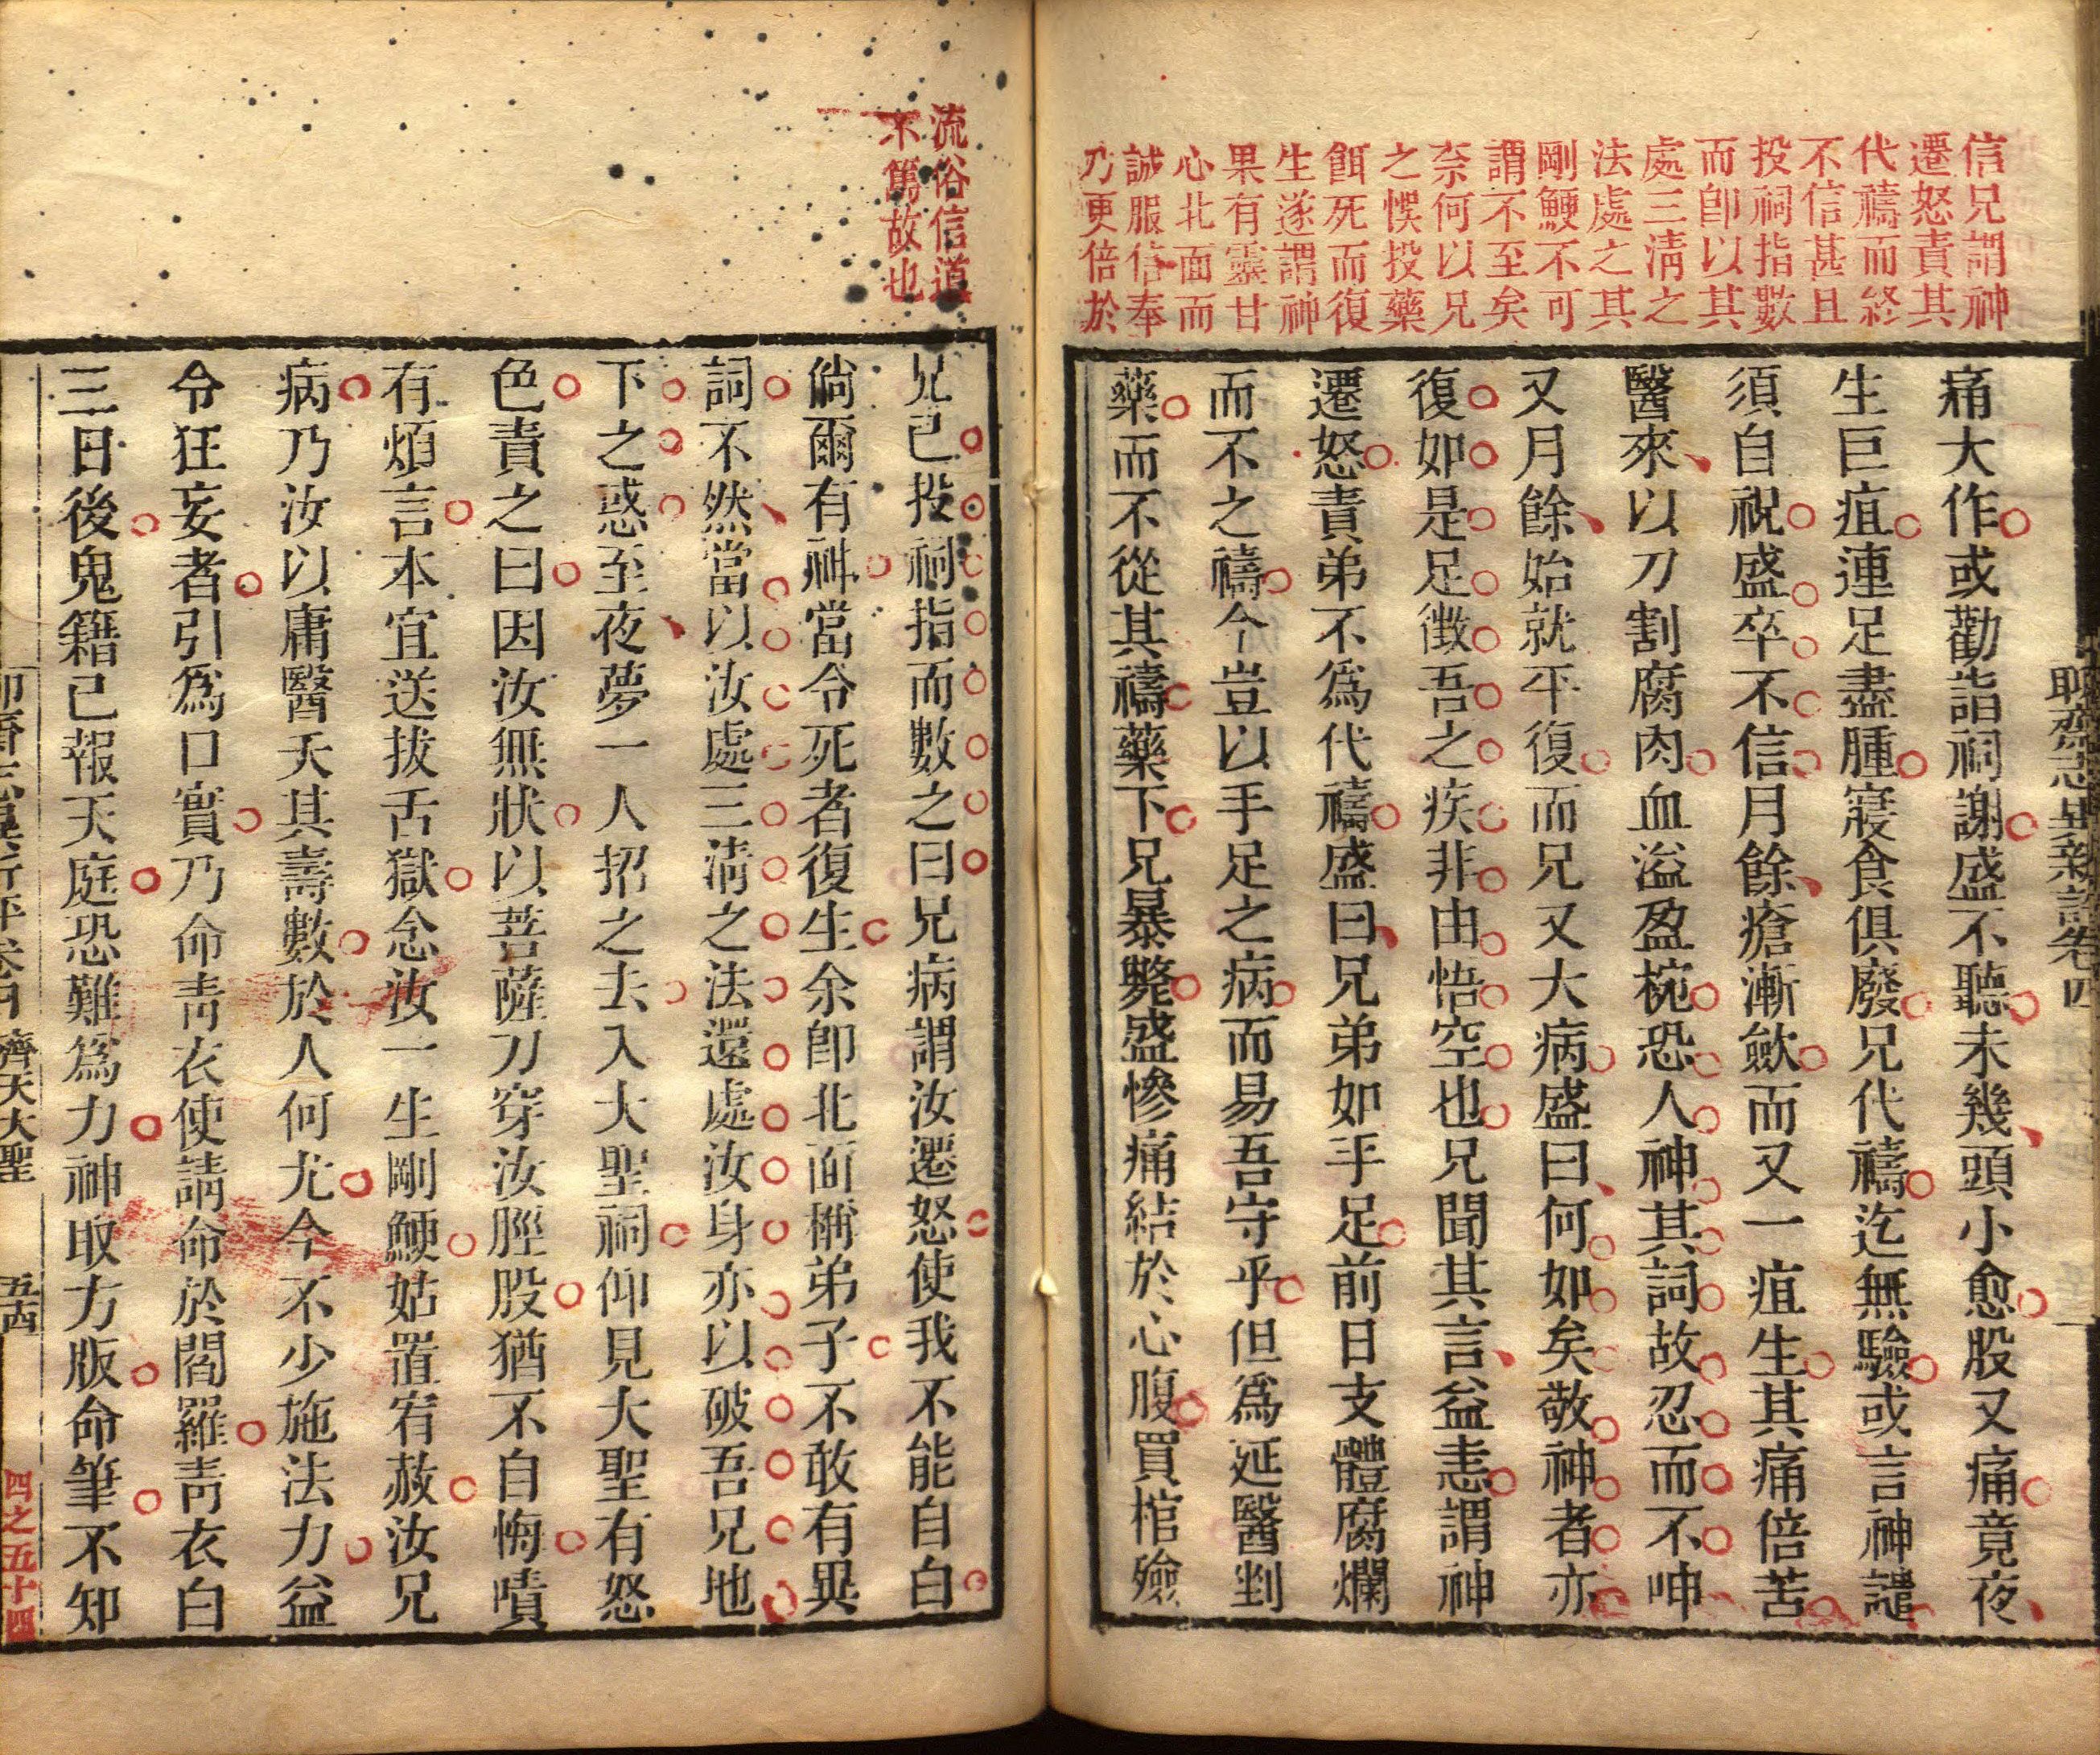 信兄謂神
遷怒責其
代禱而終
不信甚且
投祠指數
而卽以其
處三淸之
法處之其
剛鯁不可
謂不至矣
奈何以兄
之悞投藥
餌死而復
生遂謂神
果有靈甘
心北面而
誠服信奉
乃更倍於
痛大作或勸詣祠謝盛不聽未幾頭小愈股又痛竟夜
生巨疽連足盡腫寢食俱廢兄代禱迄無驗或言神譴
須自祝盛卒不信月餘瘡漸斂而又一疽生其痛倍苦
醫來以刀割腐肉血溢盈椀恐人神其詞故忍而不呻
又月餘始就平復而兄又大病盛曰何如矣敬神者亦
復如是足徵吾之疾非由悟空也兄聞其言益恚謂神
遷怒責弟不爲代禱盛曰兄弟如手足前日支體腐爛
而不之禱今豈以手足之病而易吾守乎但爲延醫剉
藥而不從其禱藥下兄暴斃盛慘痛結於心腹買棺殮
聊齋志異新評卷四
流俗信道
不篤故也
兄已投祠指而數之曰兄病謂汝遷怒使我不能自白
倘爾有神當令死者復生余卽北面稱弟子不敢有異
詞不然當以汝處三淸之法還處汝身亦以破吾兄地
下之惑至夜夢一人招之去入大聖祠仰見大聖有怒
色責之曰因汝無狀以菩薩刀穿汝脛股猶不自悔嘖
有煩言本宜送拔舌獄念汝一生剛鯁姑置宥赦汝兄
病乃汝以庸醫夭其壽數於人何尤今不少施法力益
令狂妄者引爲口實乃命靑衣使請命於閻羅靑衣白
三日後鬼籍已報天庭恐難爲力神取方版命筆不知
聊齋志異新評卷四 齊天大聖 五十四
四之五十四